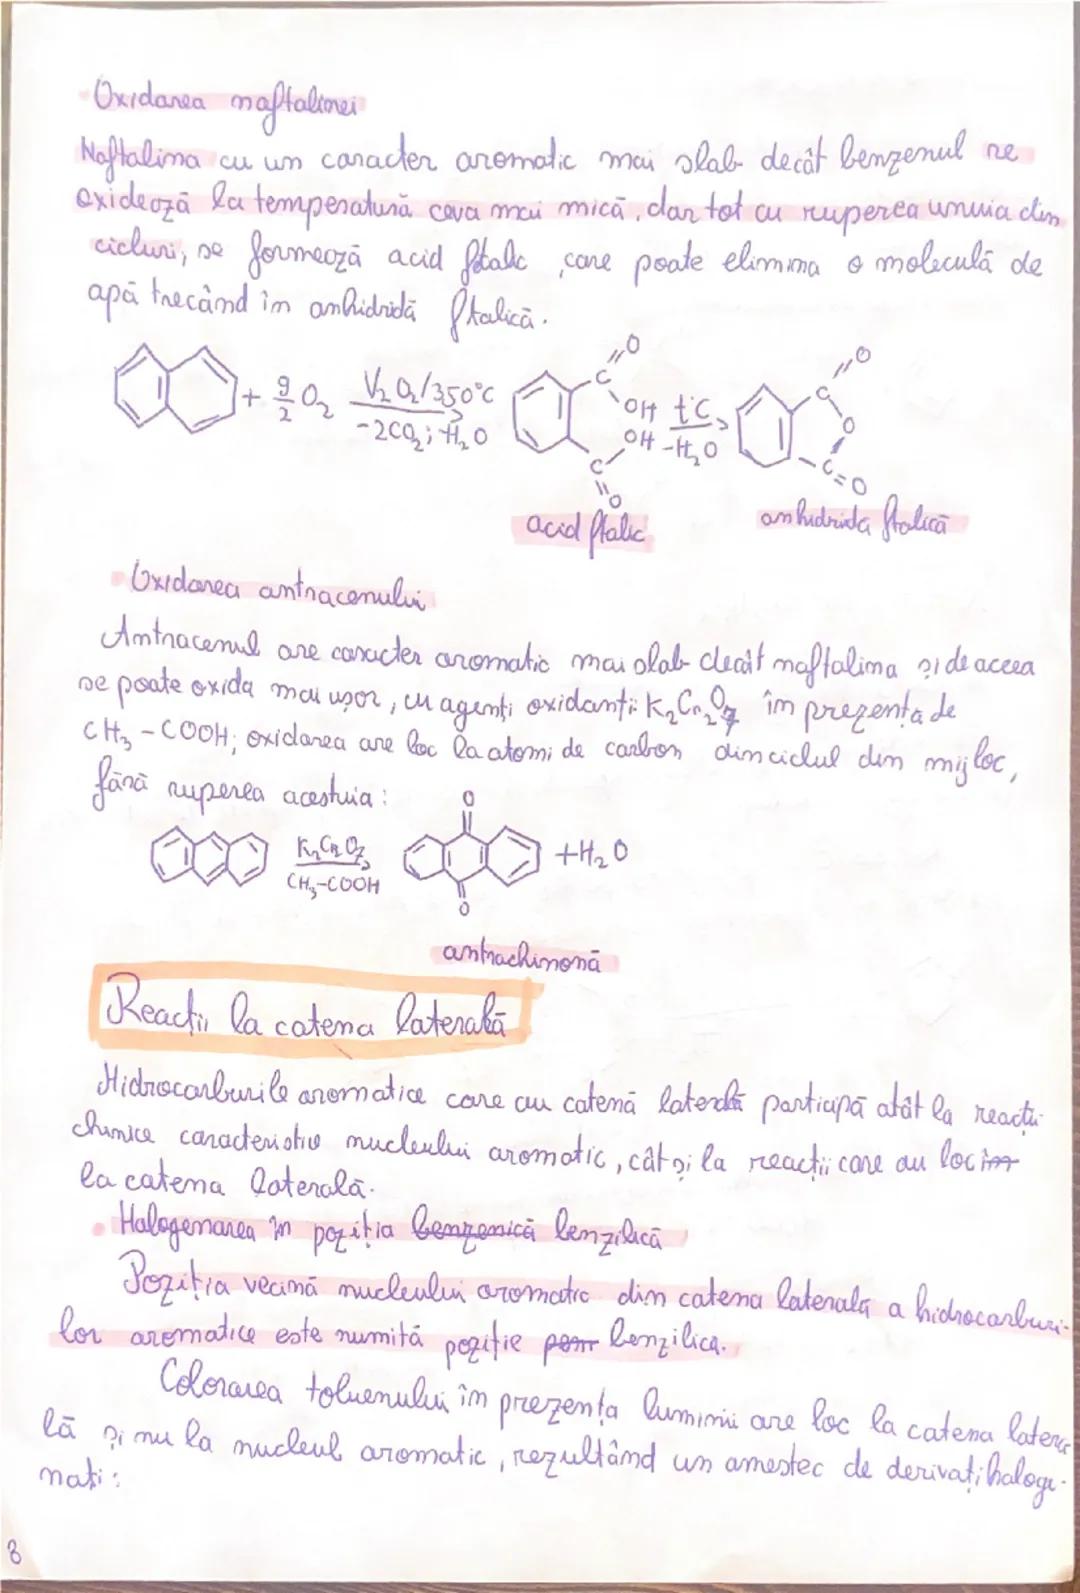 Oxidarea naftalinei
Naftalina cu un caracter aromatic mai slab decât benzenul se
oxidează la temperatură ceva mai mică, dar tot cu ruperea unuia din
cicluri, se formează acid ftalic, care poate elimina o moleculă de
apă trecând în anhidridă ftalică.
+ 9/2 O₂ V₂O₅/350°C -2CO₂; H₂O
C=O OH t°C C=O
OH -H₂O O
C=O C=O
acid ftalic anhidrida ftalică
Oxidarea antracenului
Antracenul are caracter aromatic mai slab decât naftalina și de aceea
se poate oxida mai ușor, cu agenți oxidanți: K₂Cr₂O₇ în prezența de
CH₃-COOH; oxidarea are loc la atomi de carbon din ciclul din mijloc,
fără ruperea acestuia:
O
K₂Cr₂O₇ +H₂O
CH₃-COOH
O
antrachinonă
Reacții la catena laterală
Hidrocarburile aromatice care au catenă laterală participă atât la reacții
chimice caracteristice nucleului aromatic, cât și la reacții care au loc în
la catena laterală.
Halogenarea în poziția benzenică benzilică
Poziția vecină nucleului aromatic din catena laterală a hidrocarburi-
lor aromatice este numită poziție benzilica.
Colorarea toluenului în prezența luminii are loc la catena latera
lă și nu la nucleul aromatic, rezultând un amestec de derivați haloge-
nați:
8